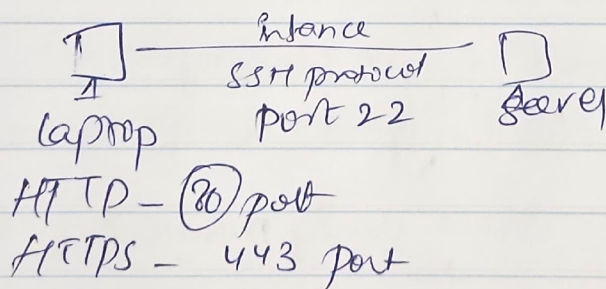 intance
SSH protocol
Laptop port 22 Server
HTTP - 80 port
HTTPS - 443 port